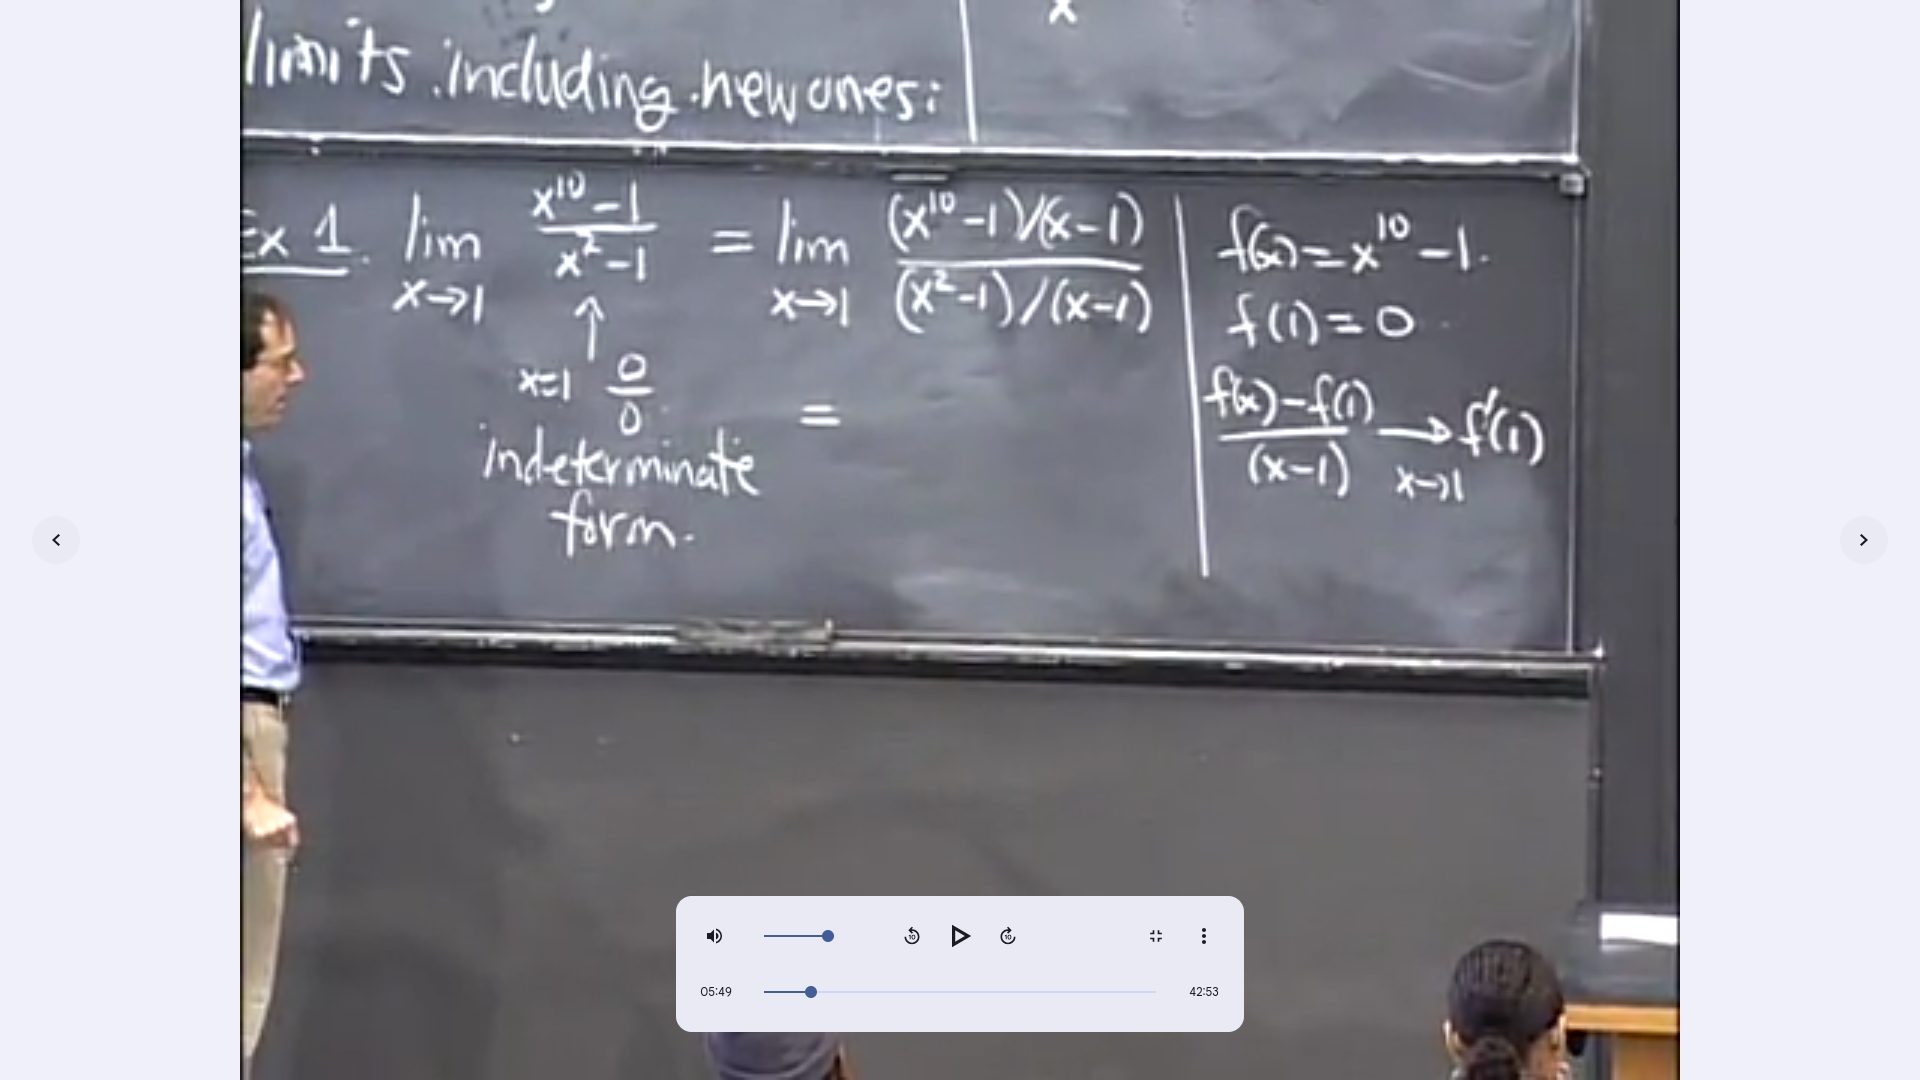 x
limits including new ones:
Ex 1. lim x→1 (x^10 - 1)/(x^2 - 1) = lim x→1 ((x^10 - 1)/(x - 1))/((x^2 - 1)/(x - 1))
↑
x=1 0/0
indeterminate
form.
=
f(x) = x^10 - 1.
f(1) = 0
(f(x) - f(1))/(x - 1) → f'(1)
x→1
10
10
05:49
42:53